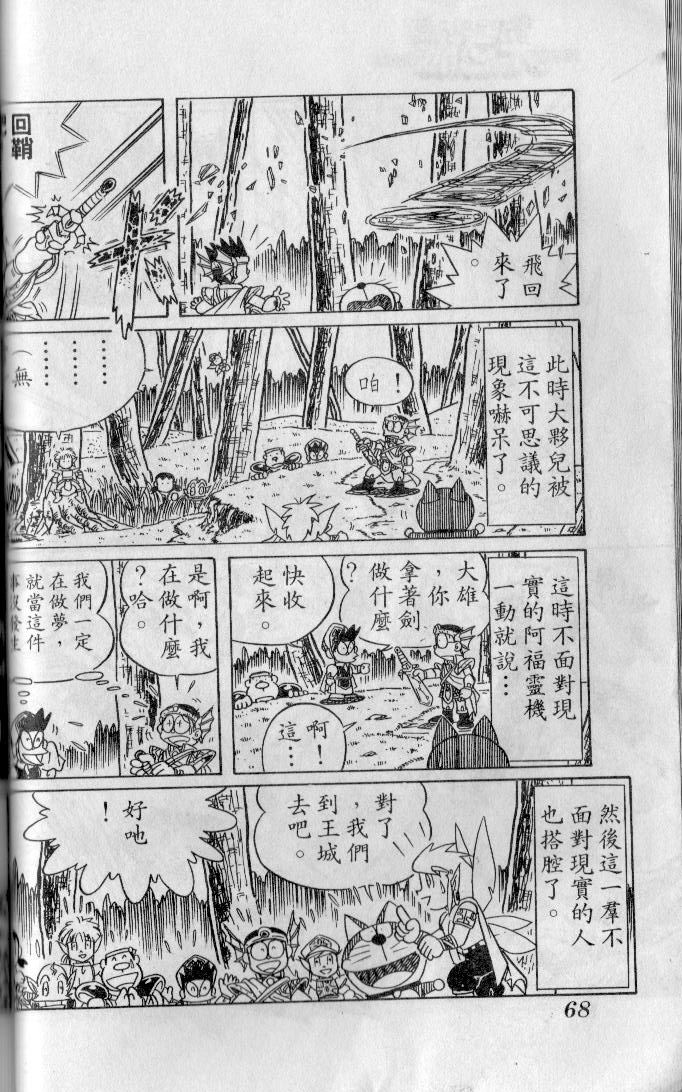 飛回
來了
。
回
鞘
此時大夥兒被
這不可思議的
現象嚇呆了。
啪！
………
………
（無
這時不面對現
實的阿福靈機
一動就說…
大雄
，你
拿著劍
做什麼
？
快收
起來。
啊！
這…
是啊，我
在做什麼
？哈。
我們一定
在做夢，
就當這件
然後這一羣不
面對現實的人
也搭腔了。
對了
，我們
到王城
去吧。
好吔
！
68